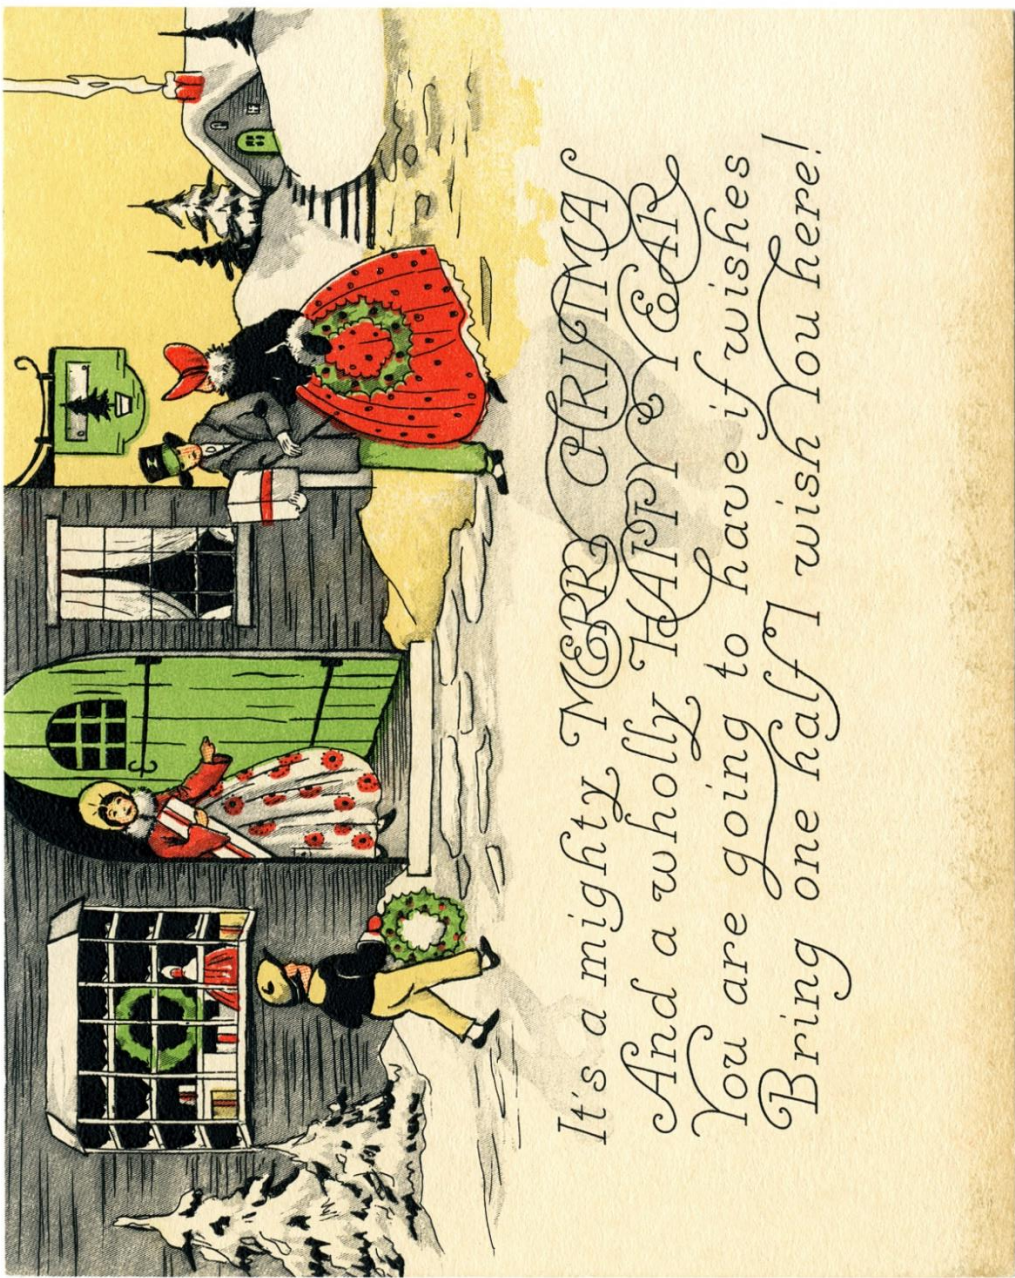 It's a mighty MERRY CHRISTMAS
And a wholly HAPPY YEAR
You are going to have if wishes
Bring one half I wish You here!